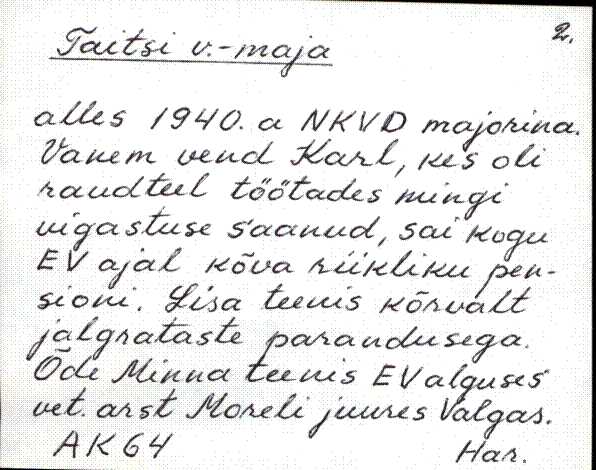 2.
Taitsi v.-maja
alles 1940. a NKVD majorina.
Vanem vend Karl, kes oli
raudteel töötades mingi
vigastuse saanud, sai kogu
EV ajal kõva riikliku pen-
sioni. Lisa teenis kõrvalt
jalgrataste parandusega.
Õde Minna teenis EV alguses
vet. arst Moreli juures Valgas.
AK 64
Har.